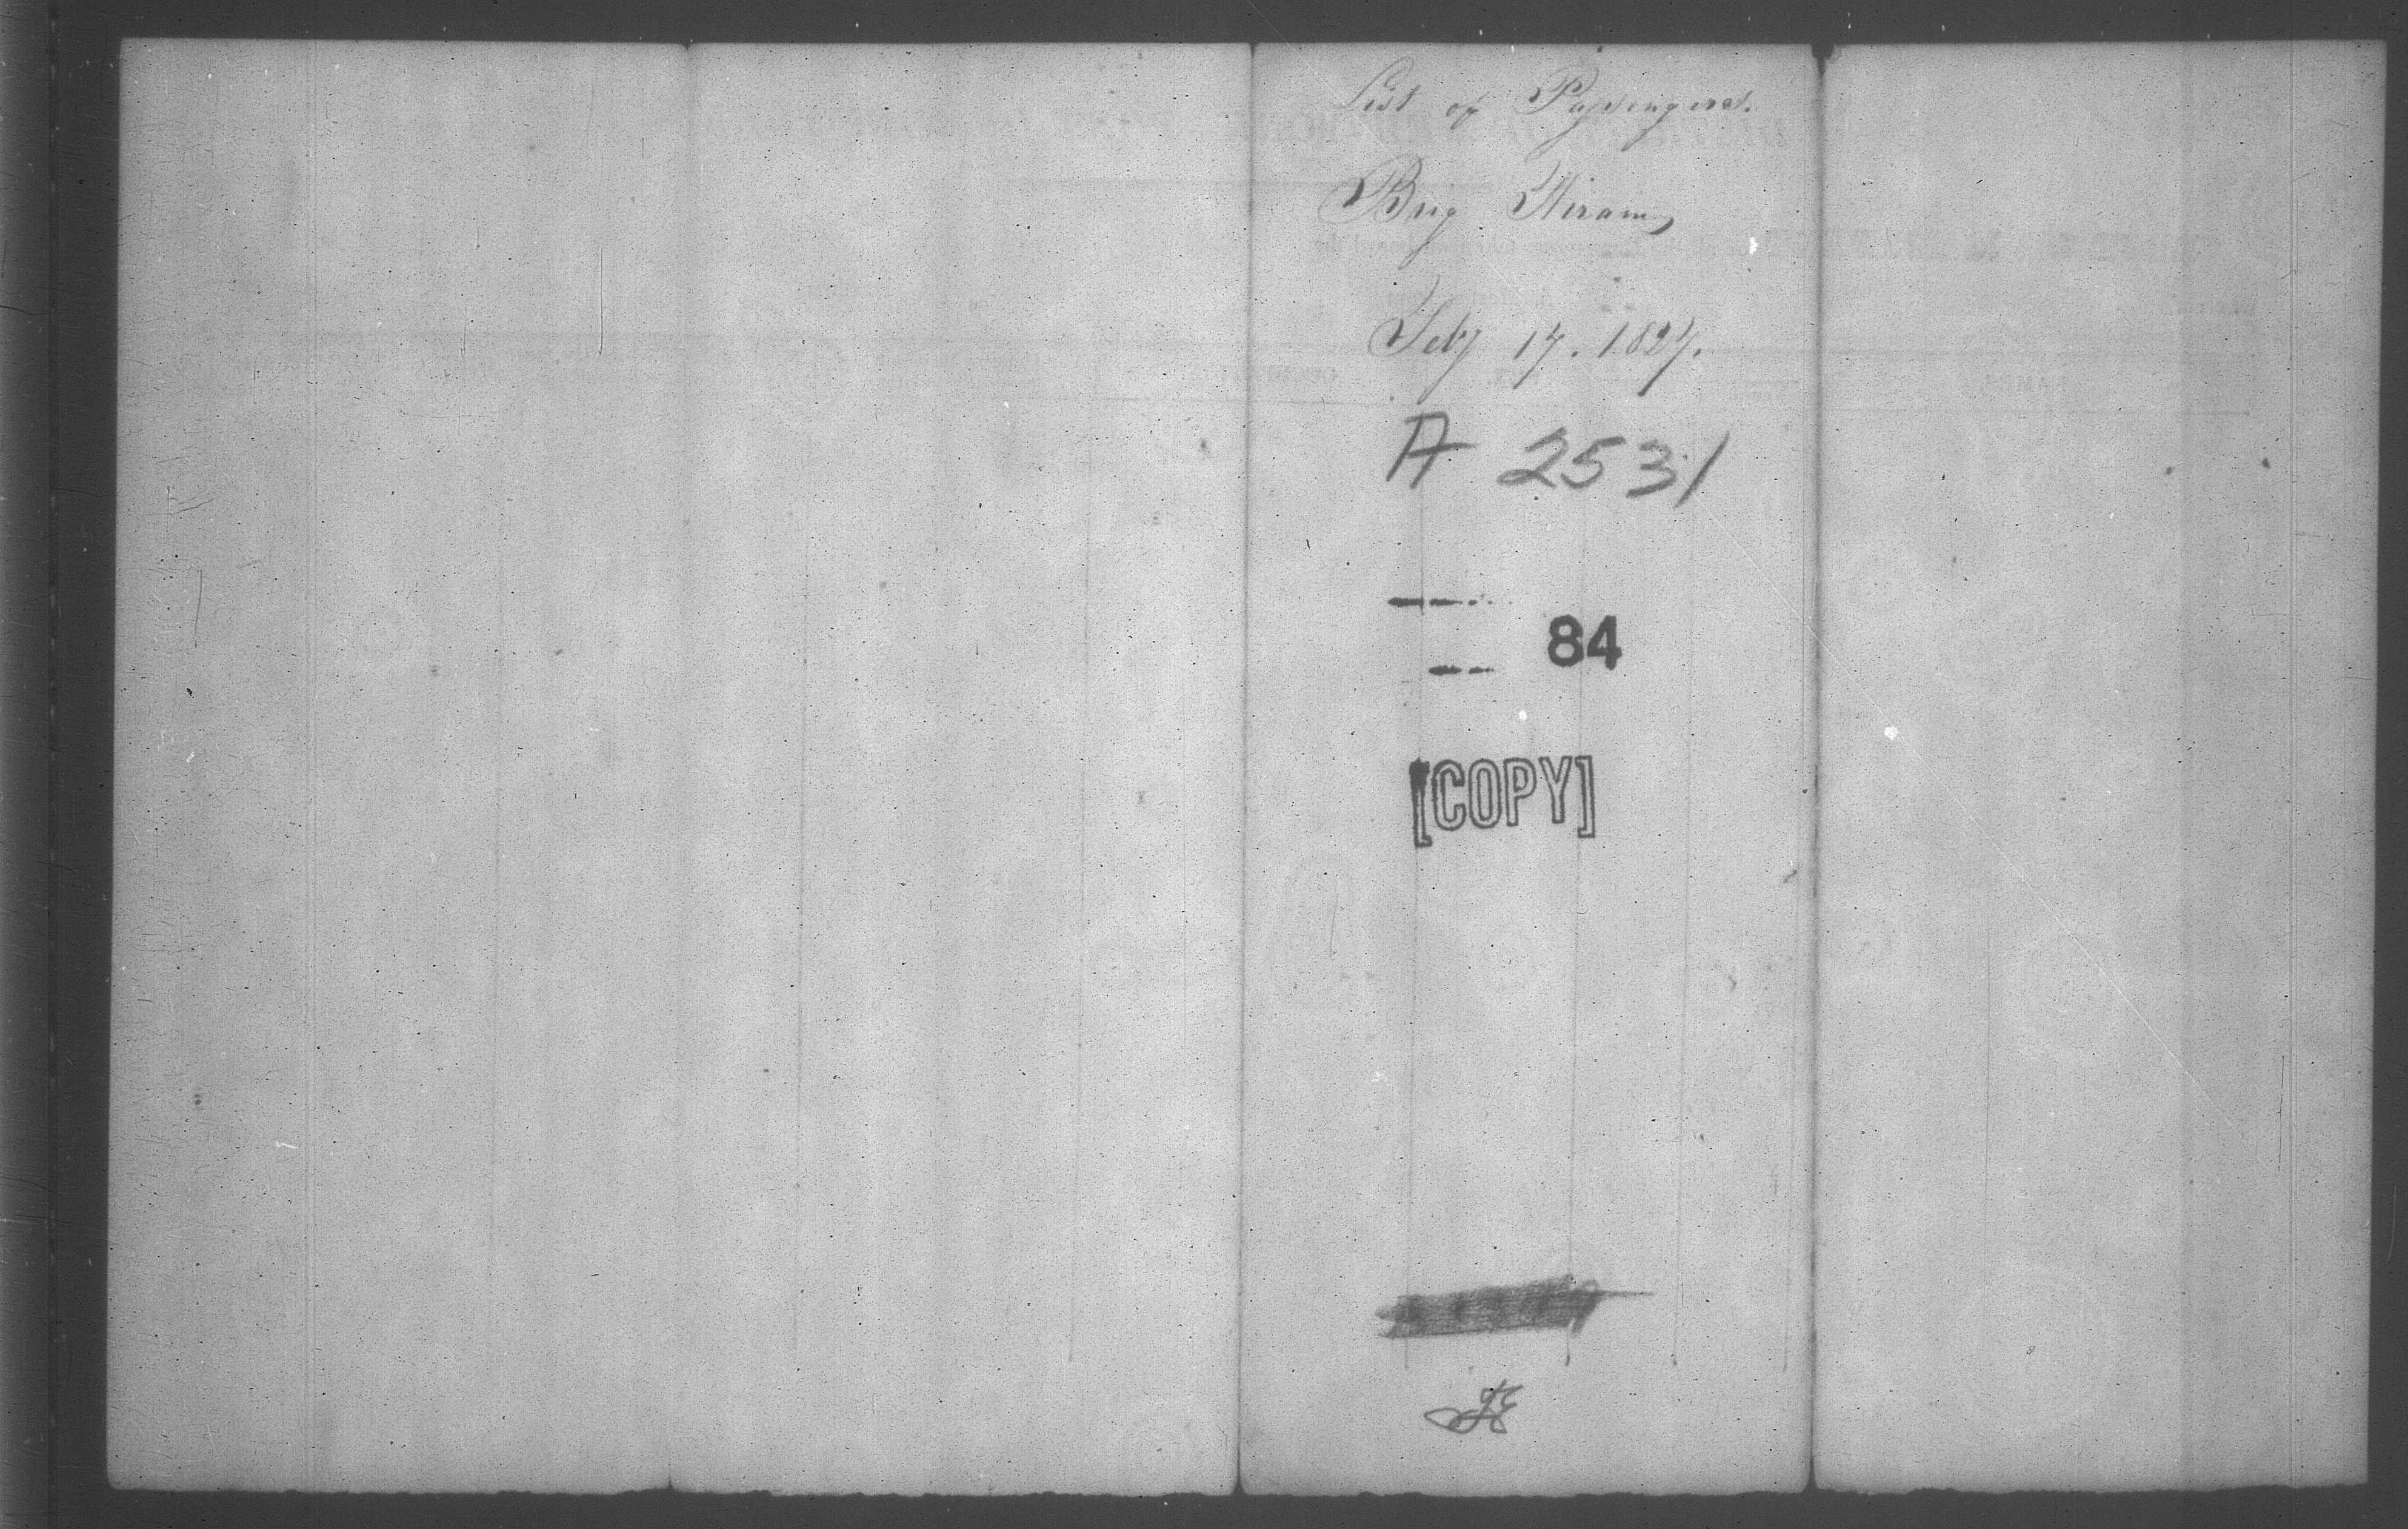 List of Passengers.
Brig Hiram
Feby 17. 1827.
A 2531
84
[COPY]